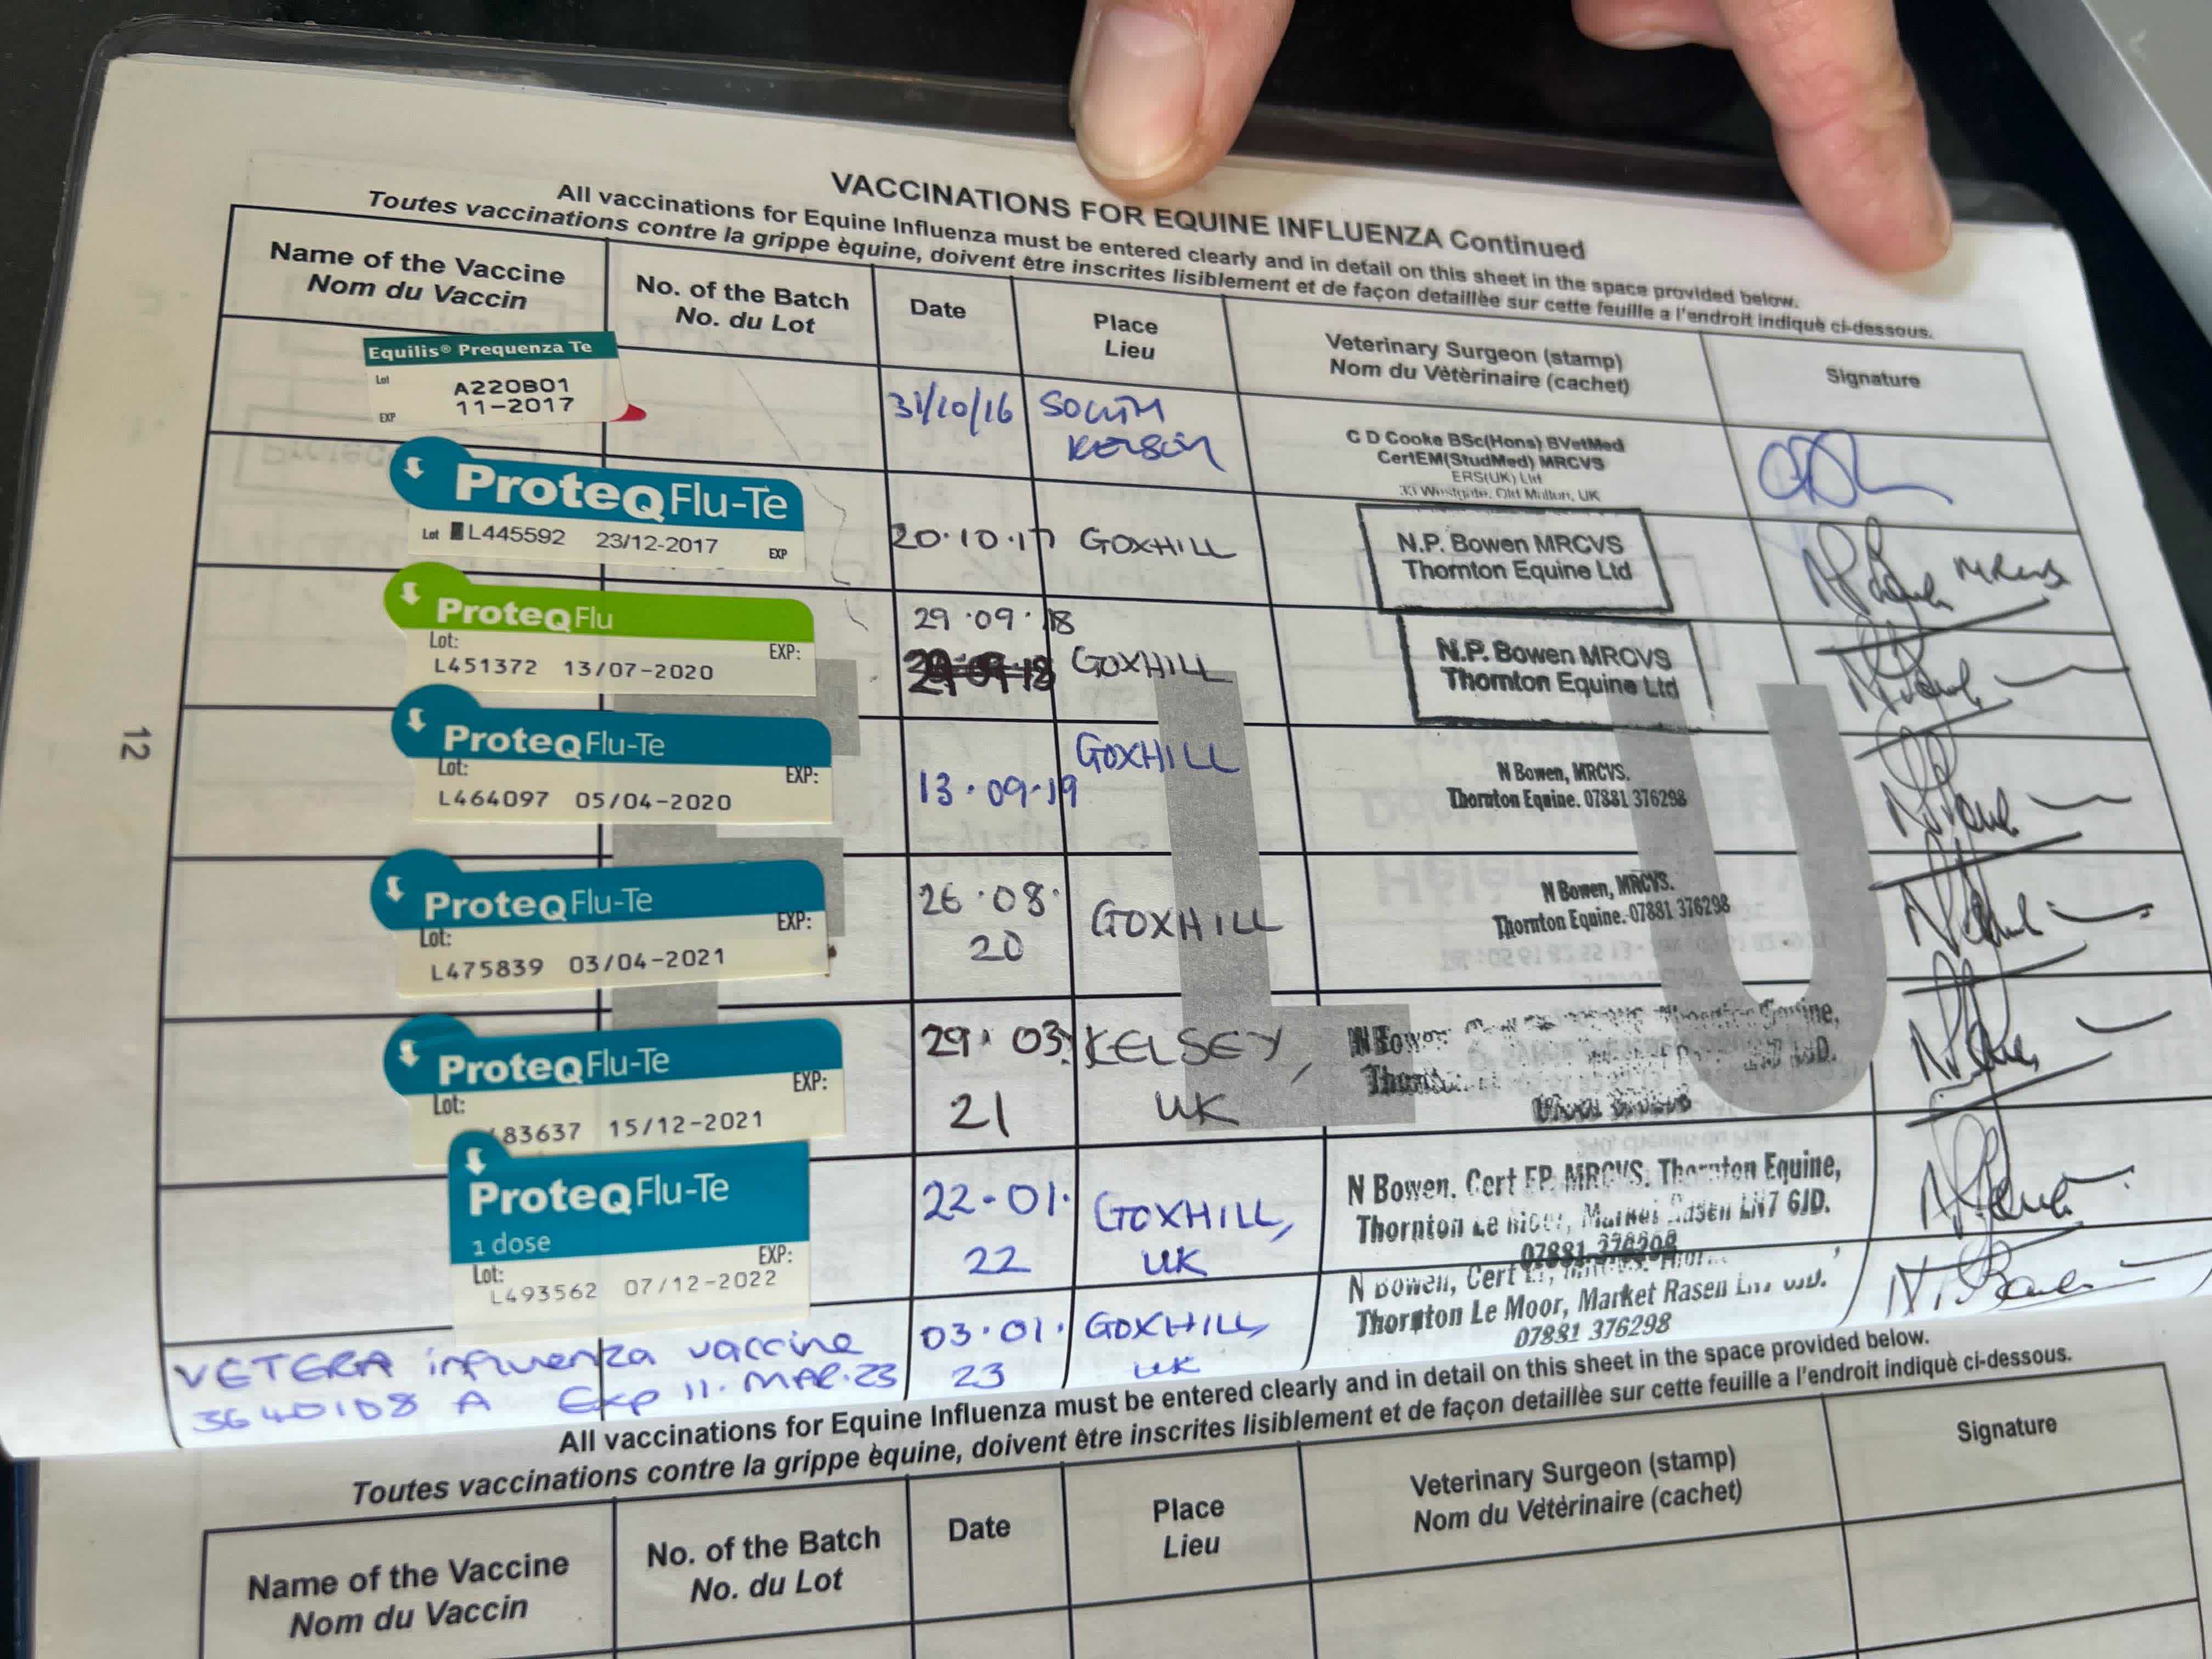 VACCINATIONS FOR EQUINE INFLUENZA Continued
All vaccinations for Equine Influenza must be entered clearly and in detail on this sheet in the space provided below.
Toutes vaccinations contre la grippe èquine, doivent être inscrites lisiblement et de façon detaillèe sur cette feuille a l'endroit indiquè ci-dessous.
Name of the Vaccine
Nom du Vaccin
No. of the Batch
No. du Lot
Date
Place
Lieu
Veterinary Surgeon (stamp)
Nom du Vètèrinaire (cachet)
Signature
Equilis® Prequenza Te
Lot
A220B01
EXP
11-2017
31/10/16
SOUTH
KELSEY
C D Cooke BSc(Hons) BVetMed
CertEM(StudMed) MRCVS
ERS(UK) Ltd
33 Westgate, Old Malton, UK
ProteqFlu-Te
Lot L445592 23/12-2017 EXP
20.10.17
GOXHILL
N.P. Bowen MRCVS
Thornton Equine Ltd
MRCVS
ProteqFlu
Lot:
EXP:
L451372 13/07-2020
29.09.18
GOXHILL
N.P. Bowen MRCVS
Thornton Equine Ltd
ProteqFlu-Te
Lot:
EXP:
L464097 05/04-2020
13.09.19
GOXHILL
N Bowen, MRCVS.
Thornton Equine. 07881 376298
ProteqFlu-Te
Lot:
EXP:
L475839 03/04-2021
26.08.
20
GOXHILL
N Bowen, MRCVS.
Thornton Equine. 07881 376298
ProteqFlu-Te
Lot:
EXP:
83637 15/12-2021
29.03.
21
KELSEY,
UK
N Bowen
ProteqFlu-Te
1 dose
Lot:
EXP:
L493562 07/12-2022
22-01.
22
GOXHILL,
UK
N Bowen, Cert EP, MRCVS, Thornton Equine,
Thornton Le Moor, Market Rasen LN7 6JD.
07881 376298
VETERA influenza vaccine
3640108 A Exp 11. MAR.23
03.01.
23
GOXHILL,
UK
N Bowen, Cert
Thornton Le Moor, Market Rasen
07881 376298
FLU
12
All vaccinations for Equine Influenza must be entered clearly and in detail on this sheet in the space provided below.
Toutes vaccinations contre la grippe èquine, doivent être inscrites lisiblement et de façon detaillèe sur cette feuille a l'endroit indiquè ci-dessous.
Name of the Vaccine
Nom du Vaccin
No. of the Batch
No. du Lot
Date
Place
Lieu
Veterinary Surgeon (stamp)
Nom du Vètèrinaire (cachet)
Signature